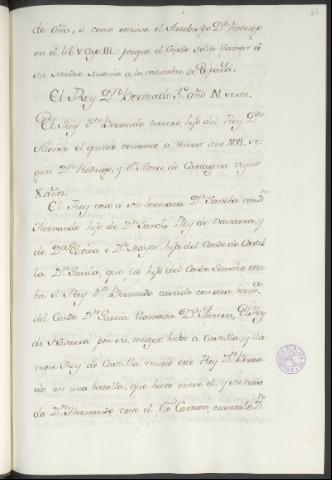 de Oña, o como escrive el Arzobispo Dn Rodrigo
en el lib. V. Cap. III. porque el Conde solia llamar á
su Madre Mionia a la costumbre de España.
El Rey Dn Bermudo 3.º año M. veinte.
El Rey Dn Bermudo tercero hijo del Rey Dn
Alonso el quinto comenzo a reinar año MXVI, se
gun Dn Rodrigo, y Dn Alonso de Cartagena reyno
X años.
El Rey caso a su hermana Da Sancha con Dn
Hernando hijo de Dn Sancho Rey de Navarra, y
de Da Elvira e Da Mayor hija del Conde de Castil
la Dn Garcia, que fue hijo del Conde Sancho esta
ba el Rey Dn Bermudo casado con otra herma
del Conde Dn Garcia llamada Da Teresa, El Rey
de Navarra por su muger hubo a Castilla, y lla
mose Rey de Castilla murio este Rey Dn Bermu
do en una batalla, que hubo entre el, y su cuña
do Dn Hernando cave el Rio Carrion, cuentalo Dn